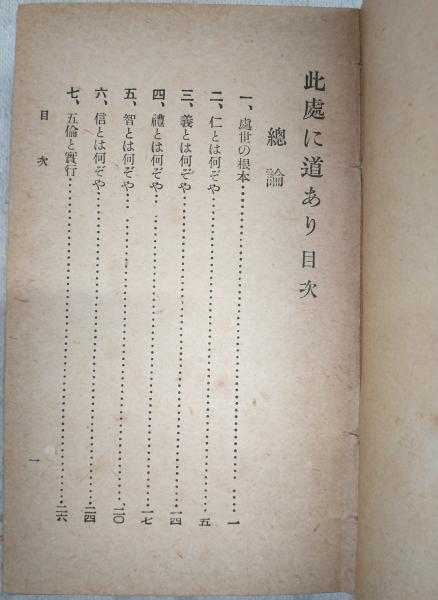 此處に道あり目次
總論
一、處世の根本……………………一
二、仁とは何ぞや……………………五
三、義とは何ぞや……………………一四
四、禮とは何ぞや……………………一七
五、智とは何ぞや……………………二〇
六、信とは何ぞや……………………二四
七、五倫と實行……………………二六
目次
一